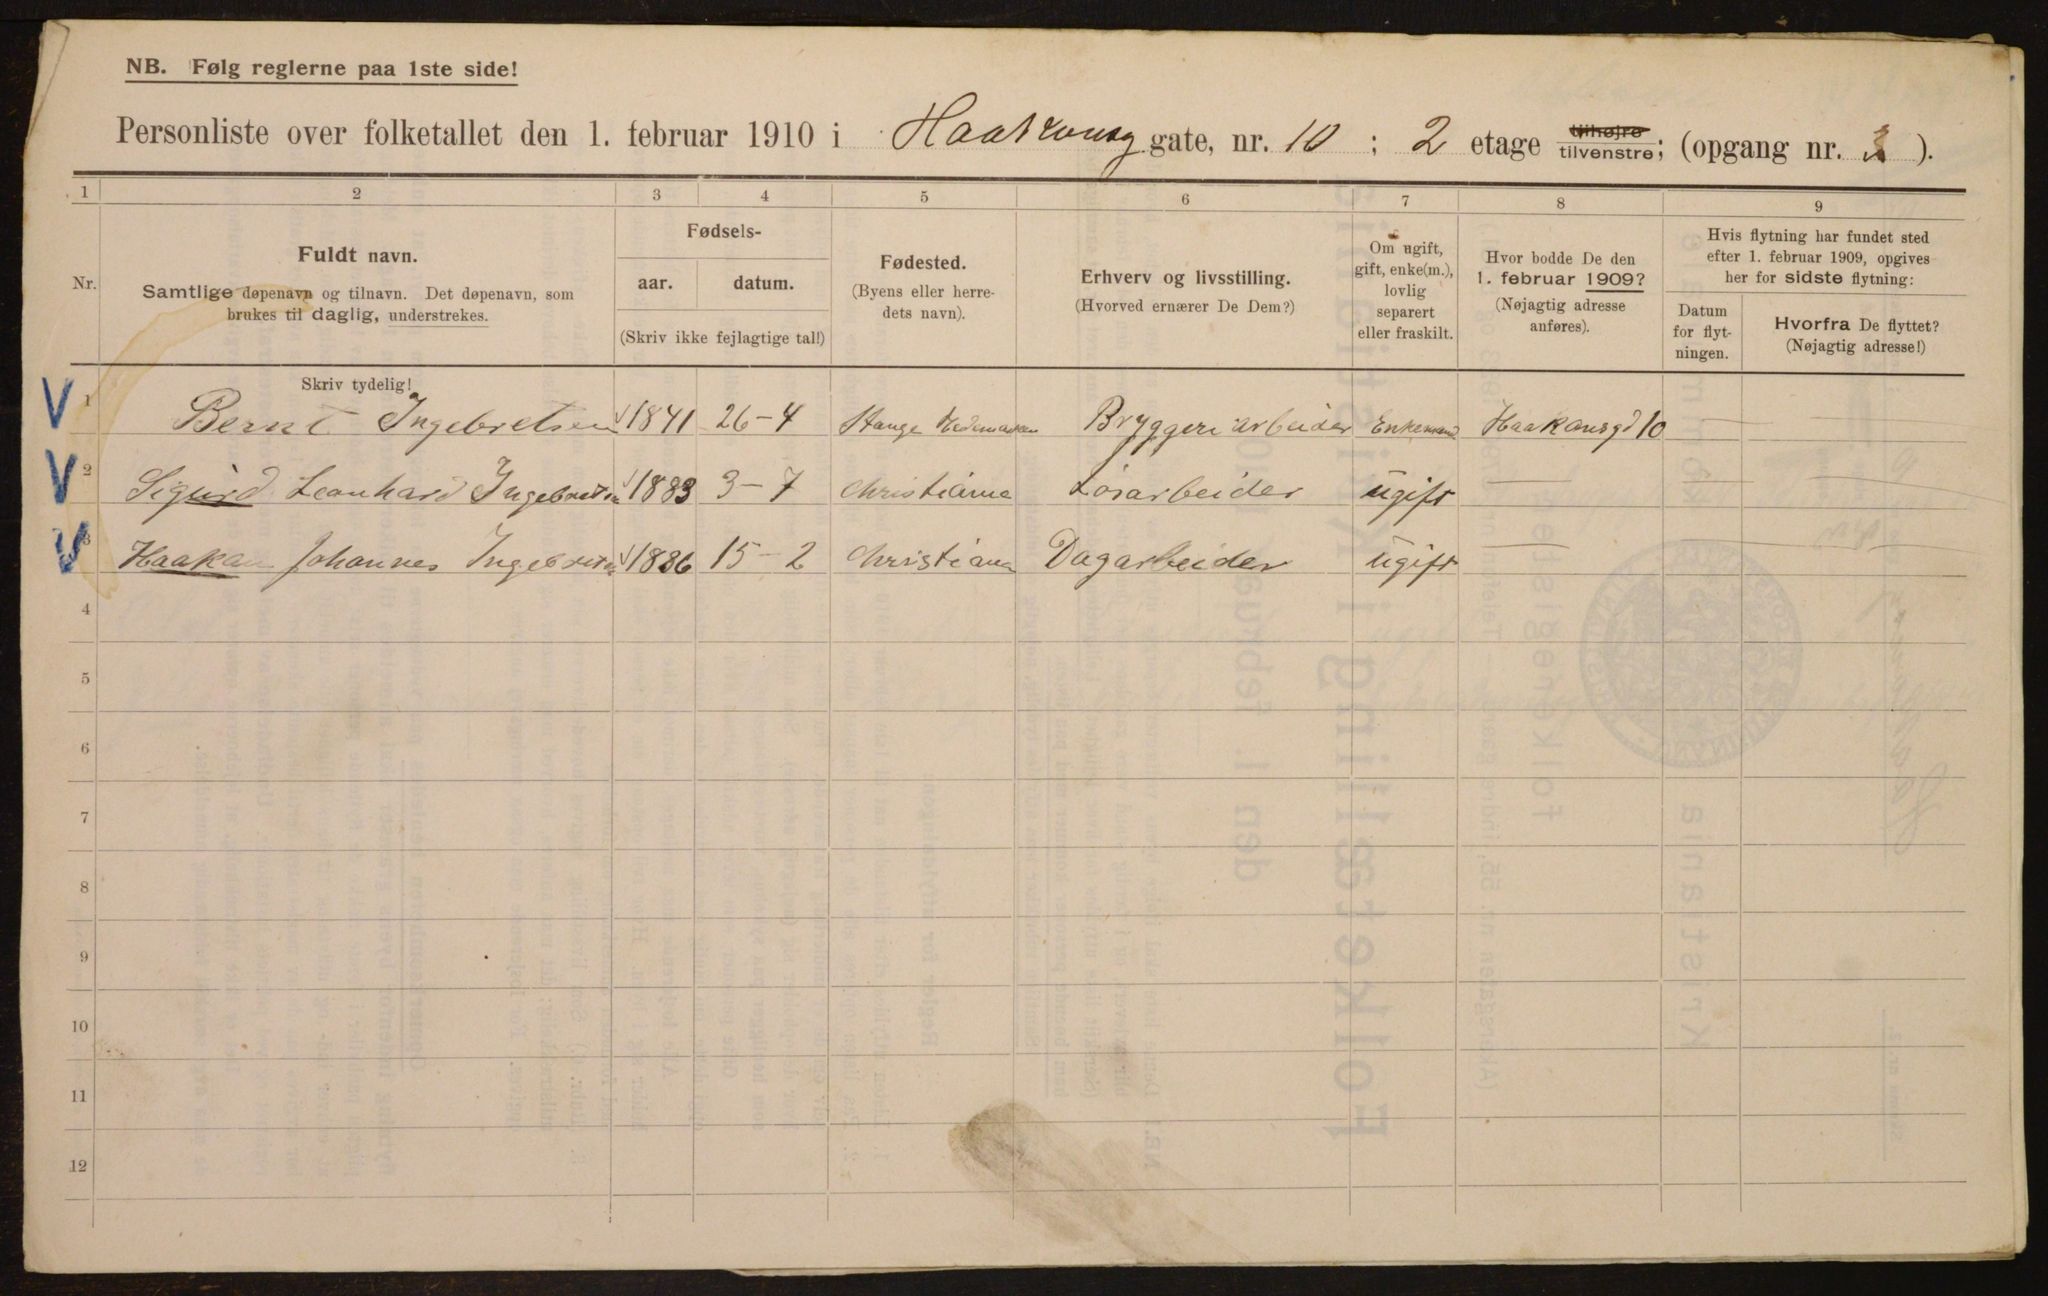 NB. Følg reglerne paa 1ste side!
Personliste over folketallet den 1. februar 1910 i Haakonsg gate, nr. 10 ; 2 etage tilhøjre tilvenstre; (opgang nr. ).
1 2 3 4 5 6 7 8 9
Nr.
Fuldt navn.
Samtlige døpenavn og tilnavn. Det døpenavn, som
brukes til daglig, understrekes.
Fødsels-
aar. datum.
(Skriv ikke fejlagtige tal!)
Fødested.
(Byens eller herre-
dets navn).
Erhverv og livsstilling.
(Hvorved ernærer De Dem?)
Om ugift,
gift, enke(m.),
lovlig
separert
eller fraskilt.
Hvor bodde De den
1. februar 1909?
(Nøjagtig adresse
anføres).
Hvis flytning har fundet sted
efter 1. februar 1909, opgives
her for sidste flytning:
Datum
for flyt-
ningen.
Hvorfra De flyttet?
(Nøjagtig adresse!)
Skriv tydelig!
V 1 Bernt Ingebretsen 1841 26-4 Stange Hedemarken Bryggeriarbeider Enkemand Haakonsgd 10
V 2 Sigurd Leonhard Ingebretsen 1883 3-7 Christiania Løsarbeider ugift —
V 3 Haakon Johannes Ingebretsen 1886 15-2 Christiania Dagarbeider ugift —
4
5
6
7
8
9
10
11
12